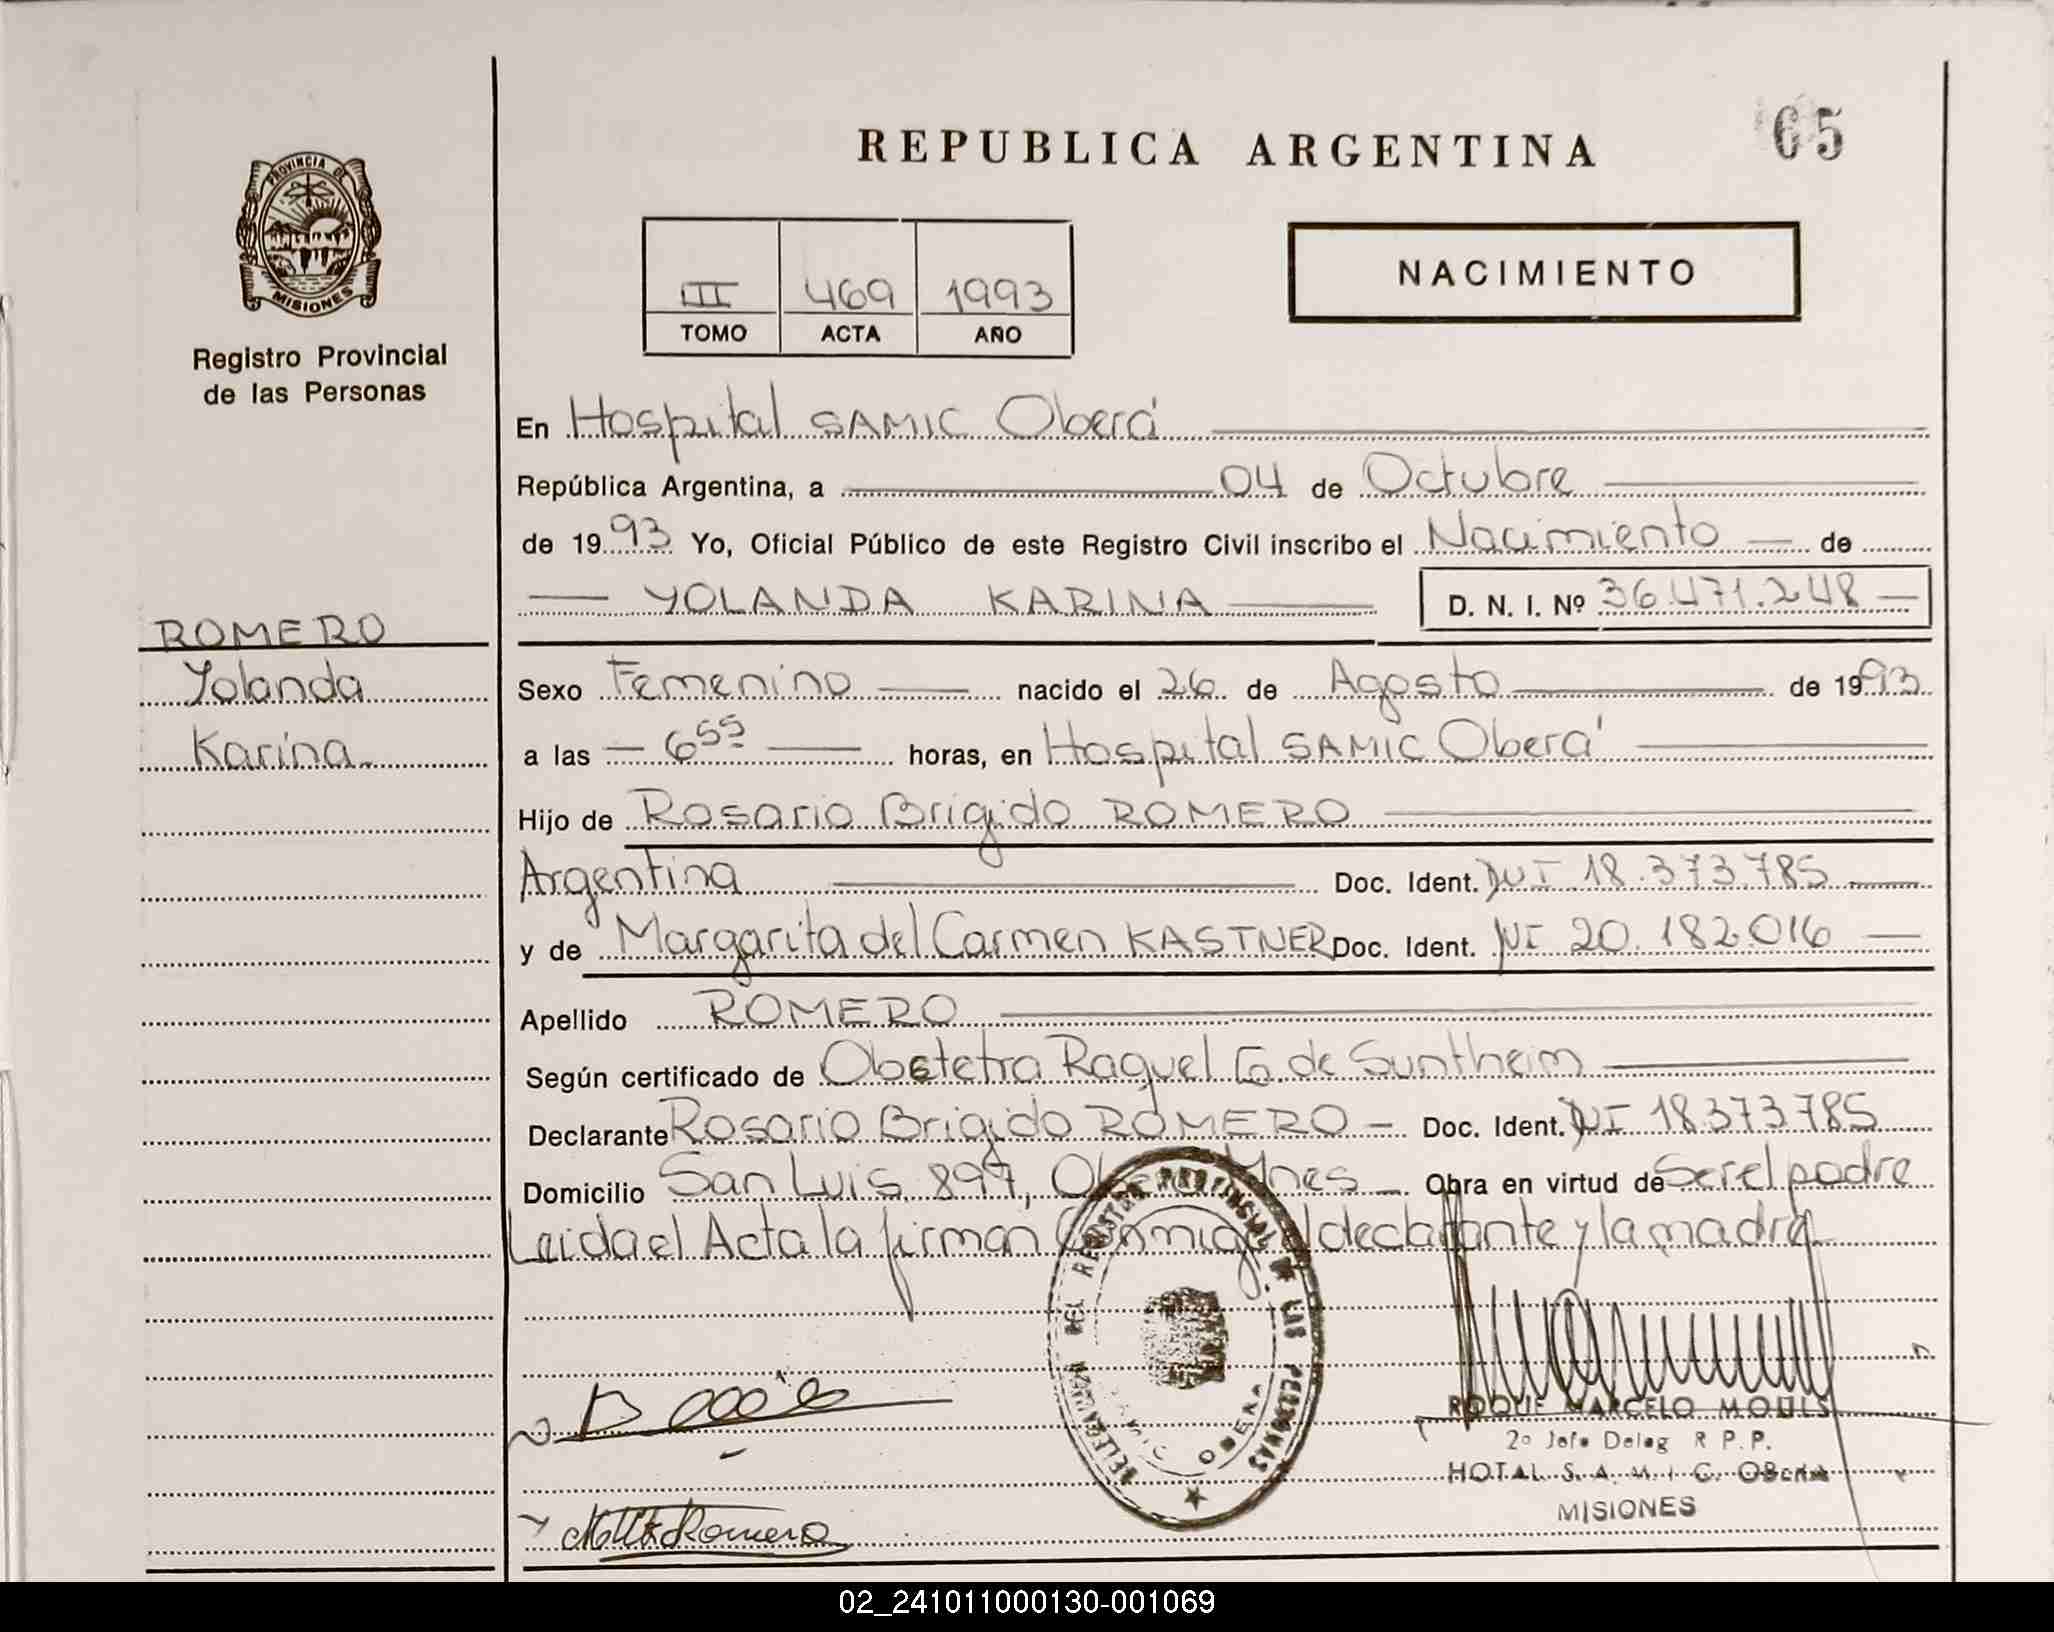 REPUBLICA ARGENTINA
65
PROVINCIA DE
MISIONES
Registro Provincial
de las Personas
III 469 1993
TOMO ACTA AÑO
NACIMIENTO
En Hospital SAMIC Oberá
República Argentina, a 04 de Octubre
de 1993 Yo, Oficial Público de este Registro Civil inscribo el Nacimiento de
YOLANDA KARINA D. N. I. Nº 36.471.248
ROMERO
Yolanda
Karina
Sexo Femenino nacido el 26 de Agosto de 1993
a las 6 55 horas, en Hospital SAMIC Oberá
Hijo de Rosario Brigido ROMERO
Argentina Doc. Ident. DNI 18.373.785
y de Margarita del Carmen KASTNER Doc. Ident. DNI 20.182.016
Apellido ROMERO
Según certificado de Obstetra Raquel G de Suntheim
Declarante Rosario Brigido ROMERO Doc. Ident. DNI 18373785
Domicilio San Luis 897, Oberá Mnes Obra en virtud de ser el padre
Leida el Acta la firman conmigo el declarante y la madre
DELEGACION DEL REGISTRO PROVINCIAL DE LAS PERSONAS
OBERA
ROQUE MARCELO MOULS
2º Jefe Deleg R P.P.
HOTAL S. A. M. I C. OBERA
MISIONES
Romero
02_241011000130-001069